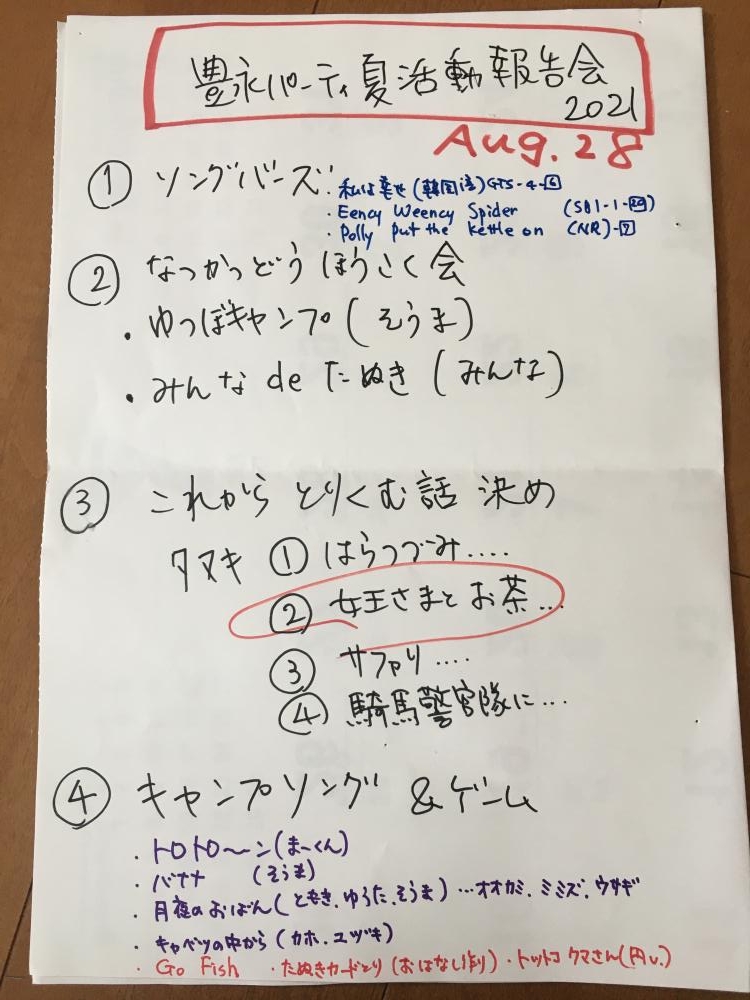 豊永パーティ夏活動報告会
2021
Aug. 28
① ソングバーズ
・私は幸せ(韓国語)GTS-4-6
・Eency Weency Spider (SB1-1-20)
・Polly put the kettle on (NR)-7
② なつかつどう ほうこく会
・ゆっぽキャンプ(そうま)
・みんな de たぬき(みんな)
③ これから とりくむ話 決め
タヌキ ① はらつづみ....
② 女王さまと お茶...
③ サファリ....
④ 騎馬警官隊に...
④ キャンプソング &ゲーム
・トロトロ〜ン(まーくん)
・バナナ (そうま)
・月夜のおばん(ともき、ゆうた、そうま)...オオカミ、ミミズ、ウサギ
・キャベツの中から(カホ、ユヅキ)
・Go Fish ・たぬきカードとり(おはなし作り) ・トットコ クマさん(円v.)